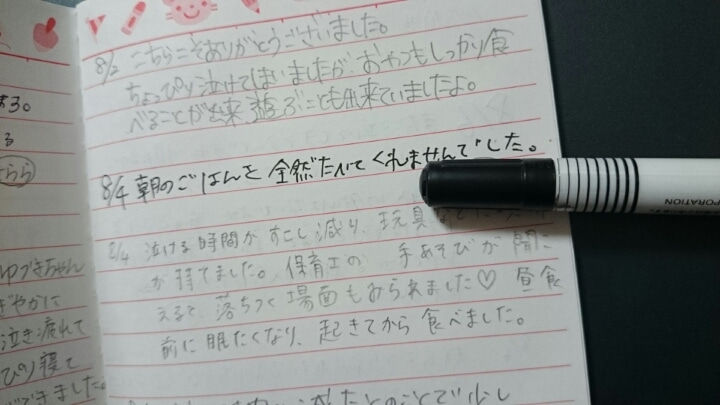 8/2 こちらこそありがとうございました。
ちょっぴり泣けてしまいましたが、おやつもしっかり食
べることが出来、遊ぶことも出来ていましたよ。
8/4 朝のごはんを全然たべてくれませんでした。
8/4 泣ける時間がすこし減り、玩具
が持てました。保育士の 手あそびが聞こ
えると落ちつく場面もみられました♡ 昼食
前に眠たくなり、起きてから食べました。
ある。
る
ゆづきちゃん
ぎやかに
泣き疲れて
ぴり寝て
できました。
PORATION